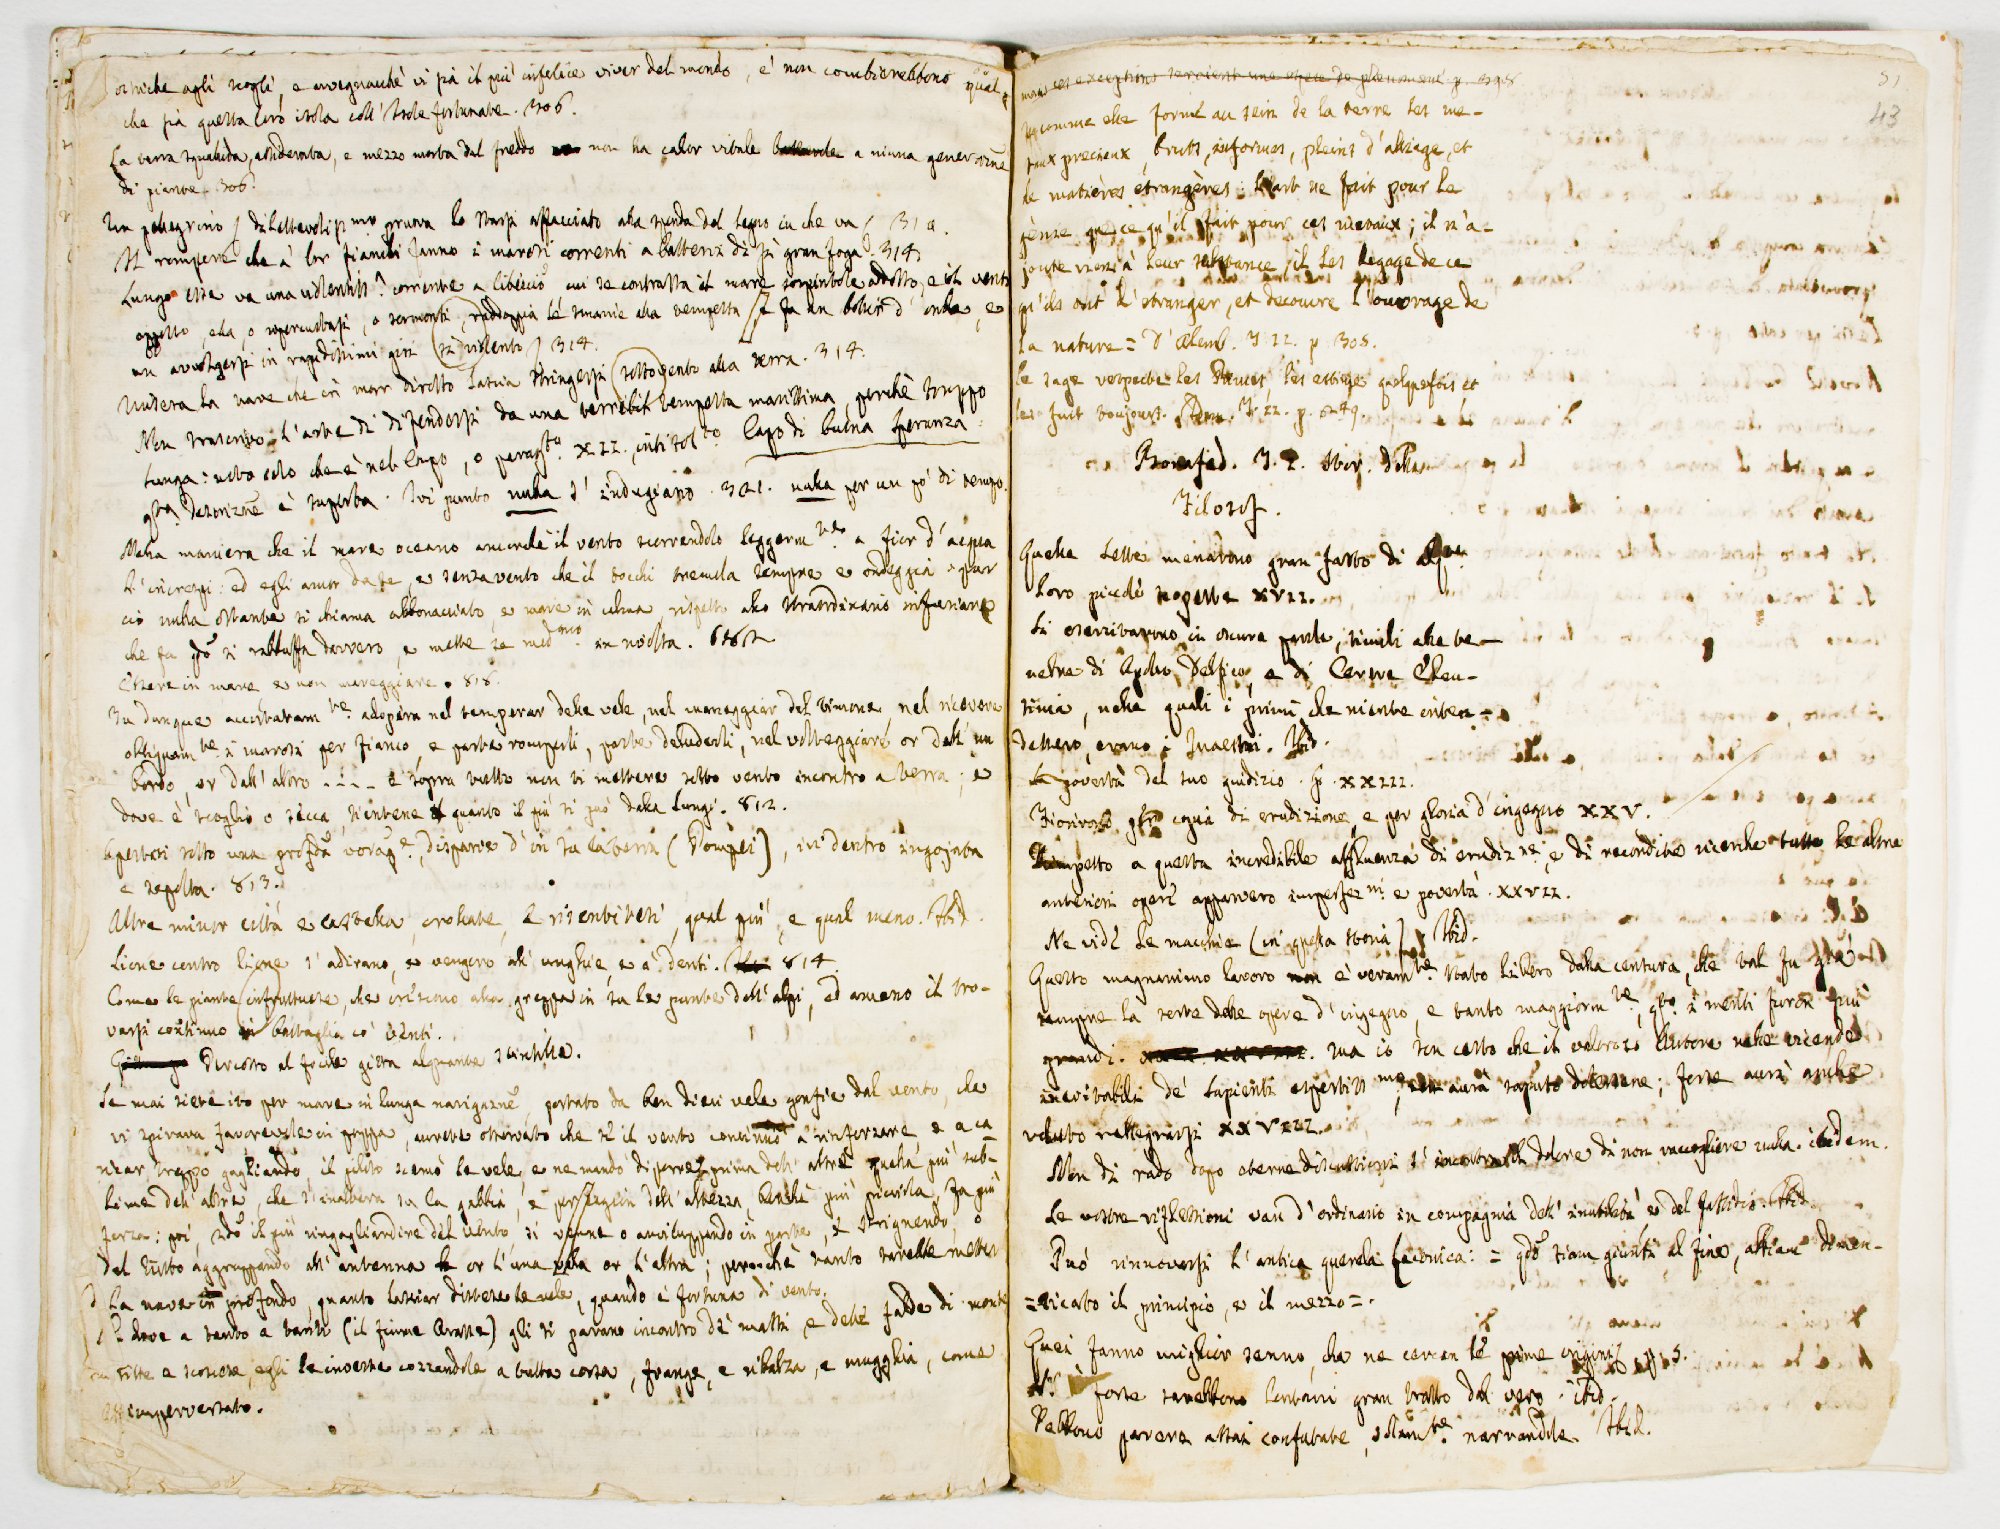 ostriche agli scogli, e avvegnacchè vi sia il più infelice viver del mondo, e non cambierebbono qual
che sia questa loro isola coll' Isole fortunate. 306.
La terra squalida, assiderata, e mezzo morta dal freddo non ha calor vitale a niuna generazne
di piante. 306.
Un pellegrino / dilettevolissmo gruova lo starsi affacciato alla sponda del legno in che va / 310.
Il rompere che a' lor fianchi fanno i marosi correnti a battersi di sì gran foga. 314.
Lungo esse va una violentiss. corrente a libeccio cui se contrasta il mare addosso, e il vento
opposto, ella, o ripercuotasi, o sormonti, raddoppia le smanie alla tempesta / fa un bollir d' onde, e
un avvolgersi in rapidissimi giri (sì violento) 314.
Misera la nave che in mar dirotto lascia stringersi sottovento alla terra. 314.
Non trascrivo l'arte di difendersi da una terribil tempesta marittima, perchè troppo
lunga: noto solo che è nel Capo, o paragfo. XII. intitolto Capo di buona Speranza.
qsta Descrizne è superba. Ivi punto nulla s' indugiano. 321. nulla per un po' di tempo.
Nella maniera che il mare oceano ancorchè il vento scorrendolo leggermte a fior d'acqua
l' increspi: ed egli ancor da se, e senza vento che il tocchi tremola sempre e ondeggia, e per
ciò nulla ostante si chiama abbonacciato, e mare in calma rispetto allo straordinario infuriare
che fa qdo si rabbuffa davvero, e mette se medmo in rivolta.
Essere in mare e non mareggiare. 818.
Tu dunque accortatamte adopera nel temperar delle vele, nel maneggiar del timone, nel ricevere
obliquamte i marosi per fianco, e parte romperli, parte deluderli, nel volteggiare or dall' un
bordo, or dall' altro .... e sopra tutto non ti mettere sotto vento incontro a terra; e
dove è scoglio o secca, tientene quanto il più si può dalla lungi. 812.
apertasi sotto una profda vorage, disparve d' in su la terra (Pompei), ivi dentro ingojata
e sepolta. 813.
Altre minor città e castella, crollate, e risentitesi, qual più, e qual meno. Ibid.
Lione contro lione s' adirano, e vengono all' unghie, e a' denti. 814
Come le piante (infruttuose, che crescono alla greppa in su le punte dell' alpi, ed amano il tro-
varsi continuo in battaglia co' venti.
Percosso al focile gitta alquante scintille.
Se mai siete ito per mare in lunga navigazne, portato da ben dieci vele gonfie dal vento, che
vi spirava favorevole in poppa, avrete osservato che se il vento continuò a rinforzare, e a ca
ricar troppo gagliardo, il piloto scemò le vele, e ne mandò disperse prima dell' altre quella più sub-
lime dell' altre, che s' inalbera su la gabbia, e per ragion dell' altezza, benchè più piccola, fa più
forza: poi, qdo il più ringagliardire del vento si venne o avviluppando in parte, e strignendo, o
del tutto aggruppando all' antenna or l'una vela or l'altra; perocchè tanto sarebbe metter
la nave in profondo, quanto lasciar distese le vele, quando è fortuna di vento.
dove a tanto a tanto (il fiume Arasse) gli si parano incontro de' massi, e delle falde di monte
fitte e scoscese, egli le investe cozzandole a tutta corsa, frange, e ribalza, e mugghia, come
imperversato.
51
43
mais ces exceptions seroient une espece de phénomene p. 308.
comme elle forme au sein de la terre les me-
taux precieux, bruts, informes, pleins d'alliage, et
de matières étrangères: l'art ne fait pour le
génie que ce qu'il fait pour ces métaux; il n'a-
joute rien à leur substance, il les degage de ce
qu'ils ont d'etranger, et decouvre l'ouvrage de
la nature = D'Alemb. T. II. p. 308.
le sage respecte les Princes, les estime quelquefois et
les fuit toujours. Idem. T. II. p.
Bonafed. T. I. Stor. della
Filosof.
Quelle sette menavono gran fasto di
loro piccole XVII.
Si esercitavono in oscure parole, simili alle te-
nebre di Apollo Delfico, e di Cerere Eleu-
sinia, nelle quali i primi che niente inten-
dessero, erano i Maestri. Ibid.
la povertà del suo giudizio. p. XXIII.
Fiorirono per copia di erudizione, e per gloria d'ingegno XXV.
Rimpetto a questa incredibile affluenza di erudizne, e di recondite ricerche tutte le altre
anteriori opere apparvero imperfezni e povertà. XXVII.
Ne vide le macchie (in questa storia) Ibid.
Questo magnanimo lavoro è veramte stato libero dalla censura, che val fu già
sempre la sorte delle opere d' ingegno, e tanto maggiormte, qto i meriti furon più
grandi. ma io son certo che il valoroso Autore nelle vicende
inevitabili de' sapienti espertissme, non aurà saputo dolersene; forse aurà anche
voluto rallegrarsi XXVIII.
Non di rado dopo eterne discussioni s' incontra il dolore di non raccogliere nulla. ibidem.
Le vostre riflessioni van d'ordinario in compagnia dell' inutilità e del fastidio. Ibid.
Può rinnoversi l' antica querela Laconica: = qdo siam giunti al fine, abbiam dimen-
=ticato il principio, e il mezzo =.
Quei fanno miglior senno, che ne cercan le prime origini. 5.
forse sarebbono lontani gran tratto dal vero. ibid.
Debbono parere assai confutate, solamte narrandole. Ibid.